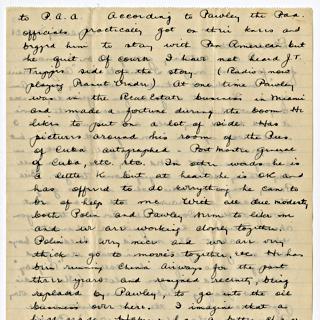 to P.A.A. According to Pawley the Pan.
officials practically got on their knees and
begged him to stay with Pan American but
he quit. Of course I have not heard J.T.
Trippe's side of the story. (Radio now
playing Peanut Vendor) At one time Pawley
was in the Real Estate business in Miami
and made a fortune during the boom. He
likes to put on a lot of side. Has
pictures around his room of the Pres.
of Cuba autographed - Post Master General
of Cuba, etc. etc. In other words he is
a little K but at heart he is OK and
has offered to do everything he can to
be of help to me. With all due modesty
both Polin and Pawley seem to like me
and we are working closely together.
Polin is very nice and we are very
thick - go to movies together, etc. He has
been running China Airways for the past
three years and resigned recently, being
replaced by Pawley, to go into the oil
business over here. I imagine that a